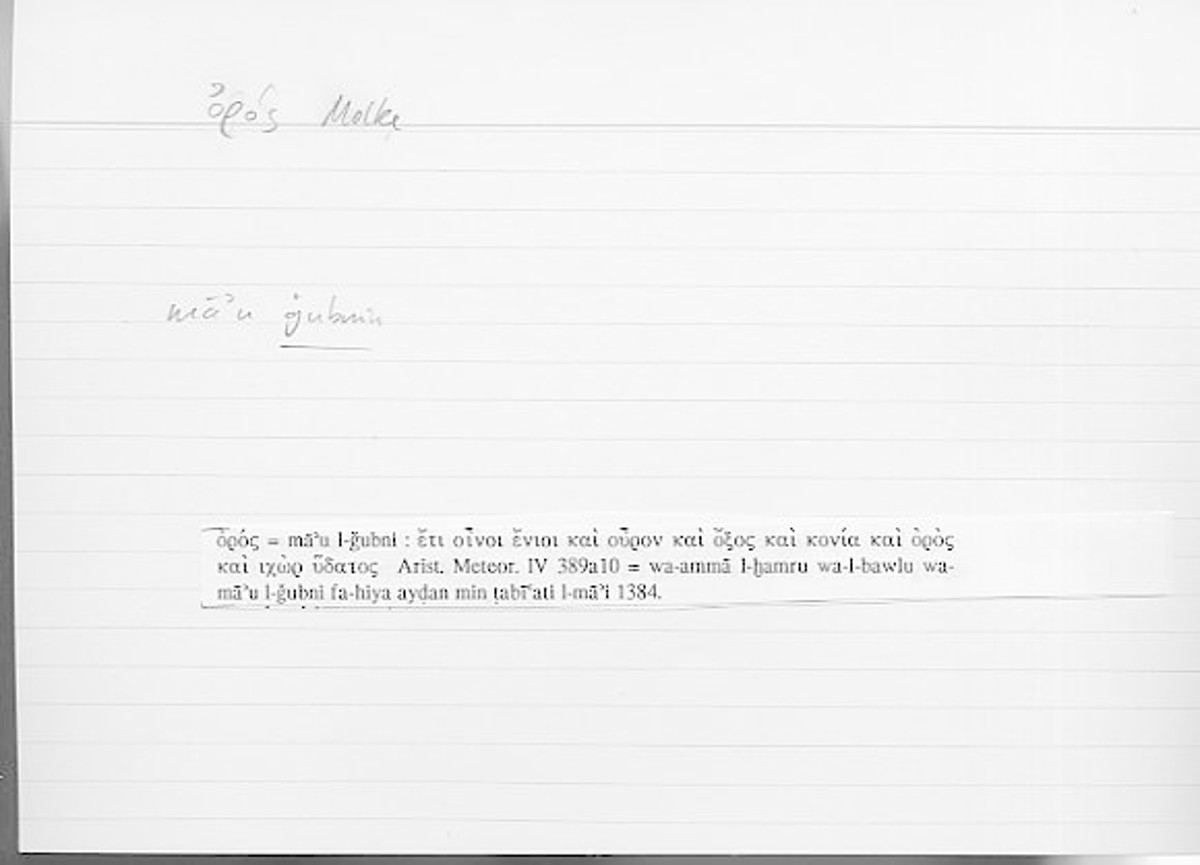 ὀρός Molke
māʾu ǧubnin
ὀρός = māʾu l-ǧubni : ἔτι οἶνοι ἔνιοι καὶ οὖρον καὶ ὄξος καὶ κονία καὶ ὀρὸς
καὶ ιχὼρ ὕδατος Arist. Meteor. IV 389a10 = wa-ammā l-ḫamru wa-l-bawlu wa-
māʾu l-ǧubni fa-hiya ayḍan min ṭabīʿati l-māʾi 1384.